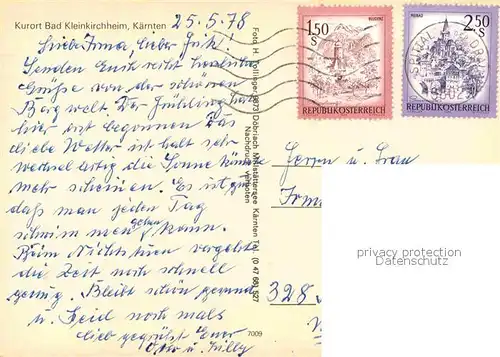 Kurort Bad Kleinkirchheim, Kärnten
25.5.78
Liebe Irma, lieber
Senden Euch recht herzliche
Grüße von der schönen
Bergwelt. Der Frühling hat
hier erst begonnen. Das
liebe Wetter ist halt sehr
wechselartig die Sonne könnte
mehr scheinen. Es ist gut
daß man jeden Tag
schwimmen gehen kann.
Beim Nichtstun vergeht
die Zeit noch schnell
genug. Bleibt schön gesund
u. Seid nochmals
lieb gegrüßt Euer
u. Willy
Foto H. 9873 Döbriach Millstättersee Kärnten
Nachdruck verboten
7009
1,50
S
BLUDENZ
REPUBLIK ÖSTERREICH
2,50
S
MURAU
REPUBLIK ÖSTERREICH
Herrn u. Frau
Irma
328
privacy protection
Datenschutz